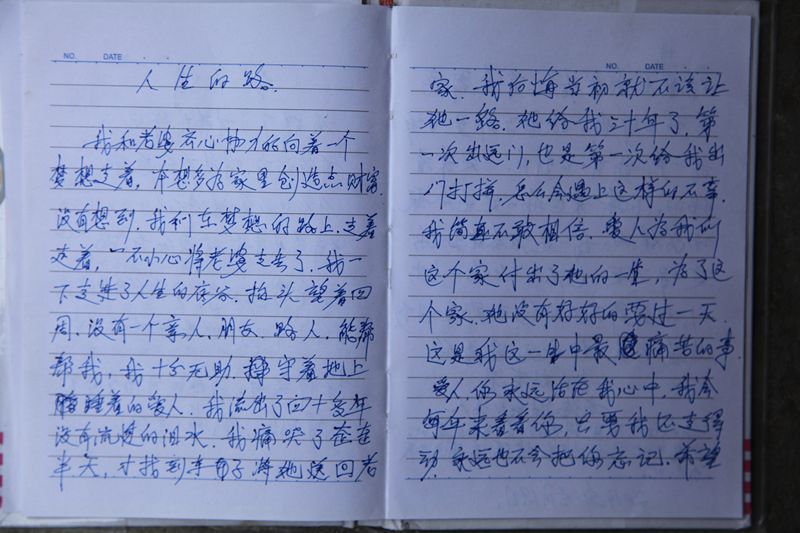 NO. DATE
人生的路.
我和老婆齐心协力的向着一个
梦想走着, 本想多为家里创造点财富
没有想到. 我们在梦想的路上. 走着
走着, 一不小心将老婆走丢了. 我一
下走进了人生的底谷. 抬头望着四
周. 没有一个亲人. 朋友. 路人. 能帮
帮我, 我十分无助. 守着地上
睡着的爱人. 我流出了四十多年
没有流过的泪水. 我痛哭了在
半天, 才找到车子将她送回老
NO. DATE
家. 我后悔当初就不该让
她一路. 她给我三十年了, 第
一次出远门, 也是第一次给我出
门打拼. 怎么会遇上这样的不幸.
我简直不敢相信. 爱人为我们
这个家付出了她的一生, 为了这
个家. 她没有好好的耍过一天.
这是我这一生中最痛苦的事.
爱人你永远活在我心中, 我会
每年来看看你, 只要我还走得
动 永远也不会把你忘记. 希望